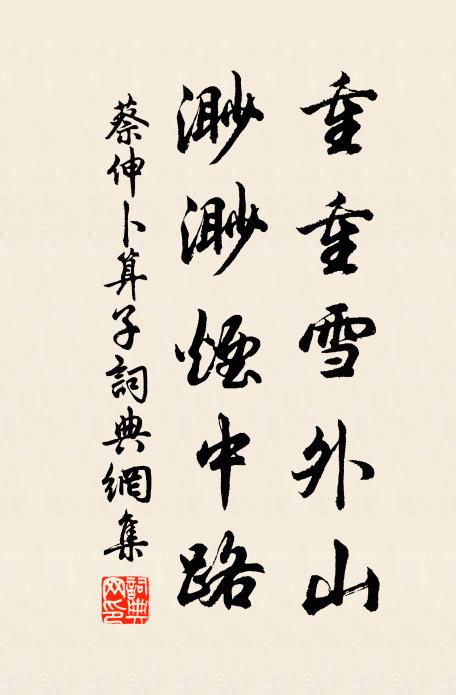 重重雪外山
渺渺煙中路
蔡伸卜算子詞典網集
詞典網印